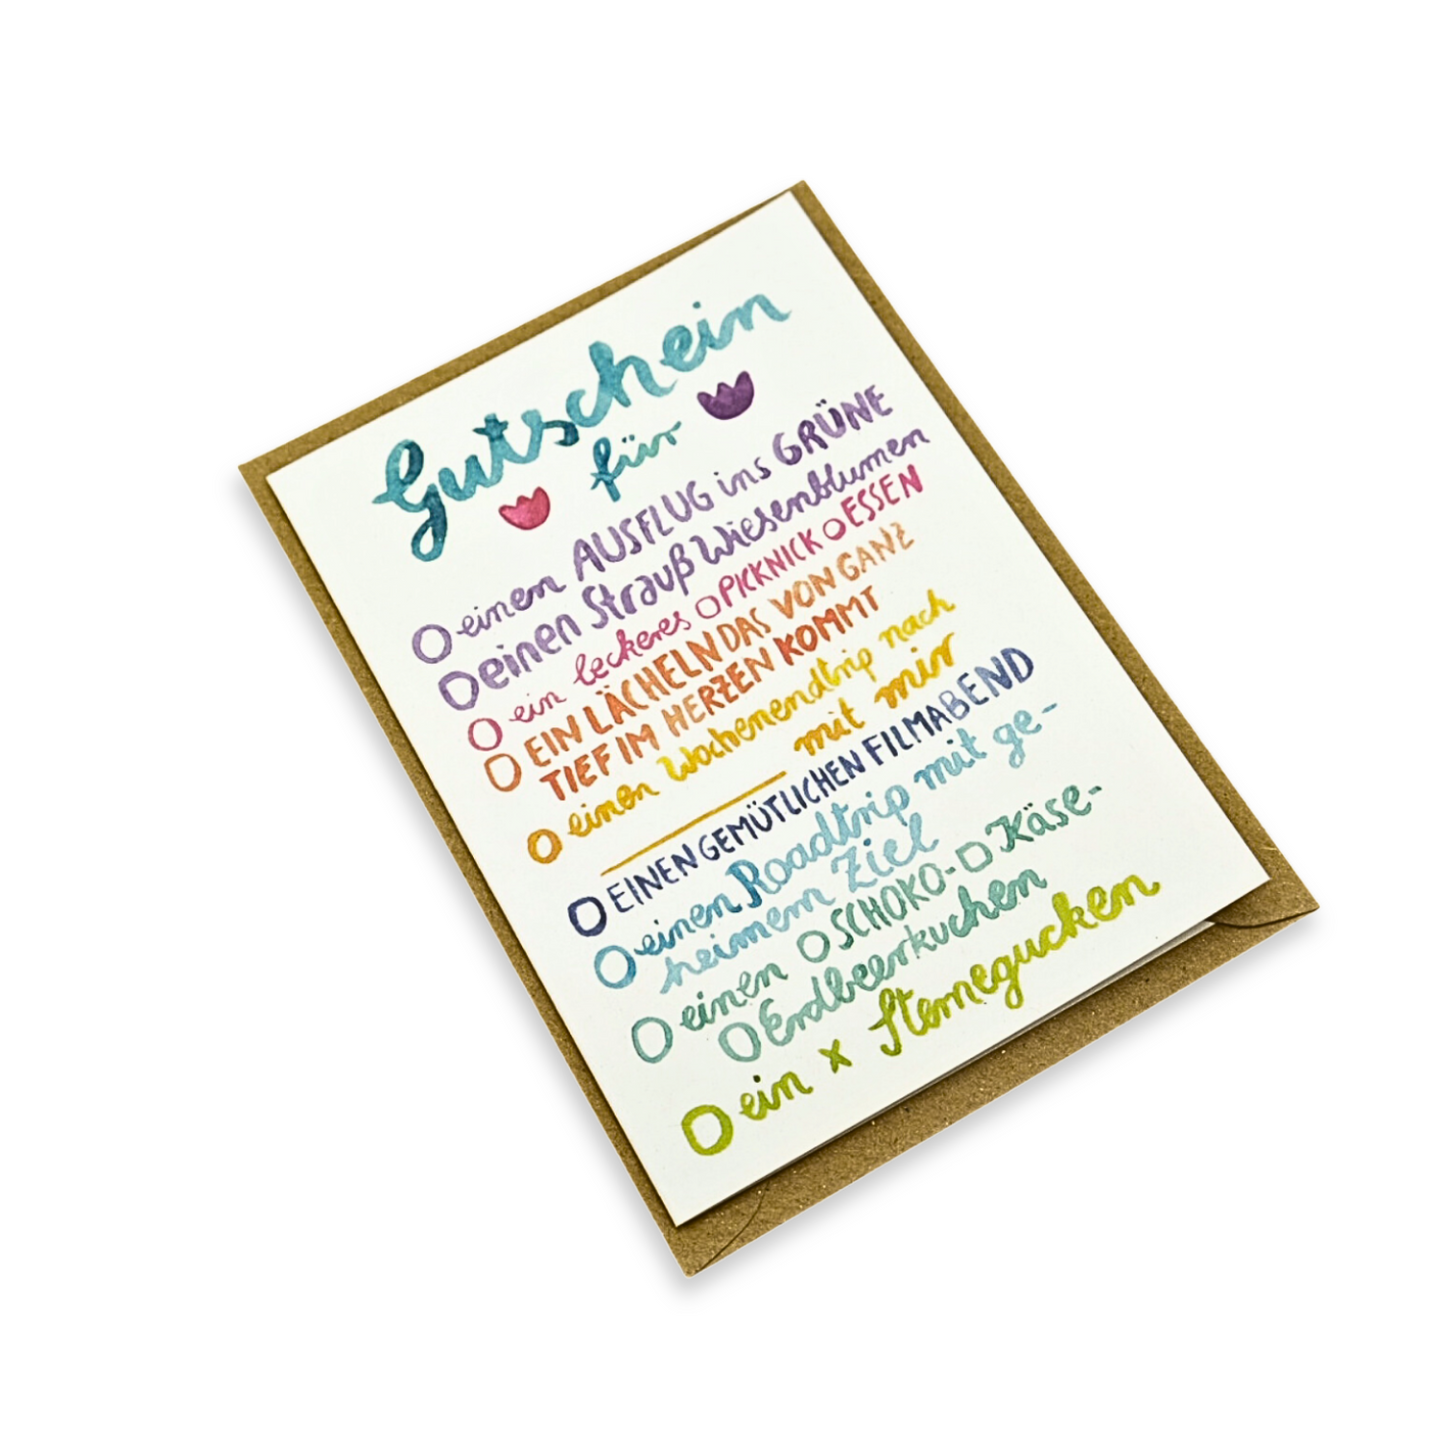 Gutschein
für
einen AUSFLUG ins GRÜNE
einen Strauß Wiesenblumen
ein leckeres PICKNICK ESSEN
EIN LÄCHELN DAS VON GANZ
TIEF IM HERZEN KOMMT
einen Wochenendtrip nach
mit mir
EINEN GEMÜTLICHEN FILMABEND
einen Roadtrip mit ge-
heimem Ziel
einen SCHOKO- Käse-
Erdbeerkuchen
ein x Sternegucken